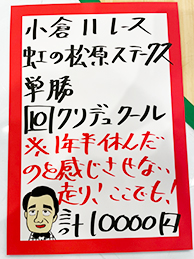 小倉11レース
虹の松原ステークス
単勝
10クリデュクール
※1年半休んだ
のを感じさせない
走り、ここでも!
計10000円